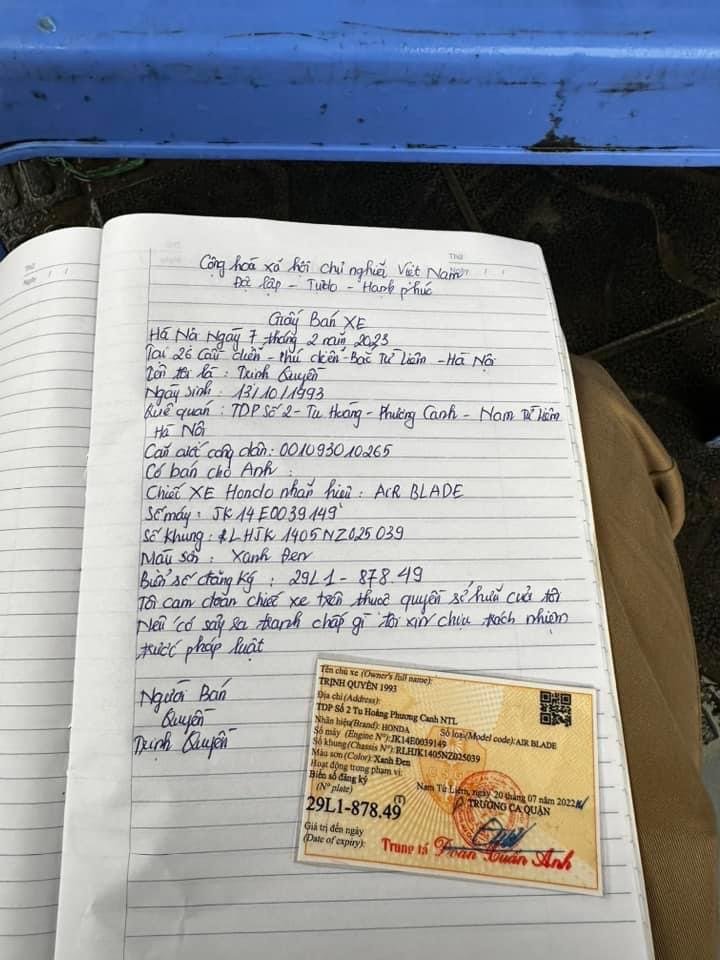 Thứ
Ngày / /
Thứ
Ngày / /
Cộng hoà xã hội chủ nghĩa Việt Nam
Độc lập - Tự do - Hạnh phúc
Giấy Bán XE
Hà Nội Ngày 7 tháng 2 năm 2023
Tại 26 Cầu diễn - Phú diễn - Bắc Từ Liêm - Hà Nội
Tên tôi là : Trịnh Quyền
Ngày sinh : 13/10/1993
Quê quán : TDP Số 2 - Tu Hoàng - Phương Canh - Nam Từ Liêm
Hà Nội
Căn cước công dân : 001093010265
Có bán cho Anh :
Chiếc XE Honda nhãn hiệu : AiR BLADE
Số máy : JK14E0039149
Số khung : RLHJK1405NZ025039
Màu sơn : Xanh Đen
Biển số đăng ký : 29L1 - 878.49
Tôi cam đoan chiếc xe trên thuộc quyền sở hữu của tôi
Nếu có sảy ra tranh chấp gì tôi xin chịu trách nhiệm
trước pháp luật
Người Bán
Quyền
Trịnh Quyền
Tên chủ xe (Owner's full name):
TRỊNH QUYỀN 1993
Địa chỉ (Address):
TDP Số 2 Tu Hoàng Phương Canh NTL
Nhãn hiệu(Brand): HONDA Số loại(Model code): AIR BLADE
Số máy (Engine Nº): JK14E0039149
Số khung(Chassis Nº): RLHJK1405NZ025039
Màu sơn (Color): Xanh Đen
Hoạt động trong phạm vi:
Biển số đăng ký
(Nº plate)
Nam Từ Liêm, ngày 20 tháng 07 năm 2022
TRƯỞNG CA QUẬN
29L1-878.49
Giá trị đến ngày
(Date of expiry):
Trung tá Đoàn Xuân Anh